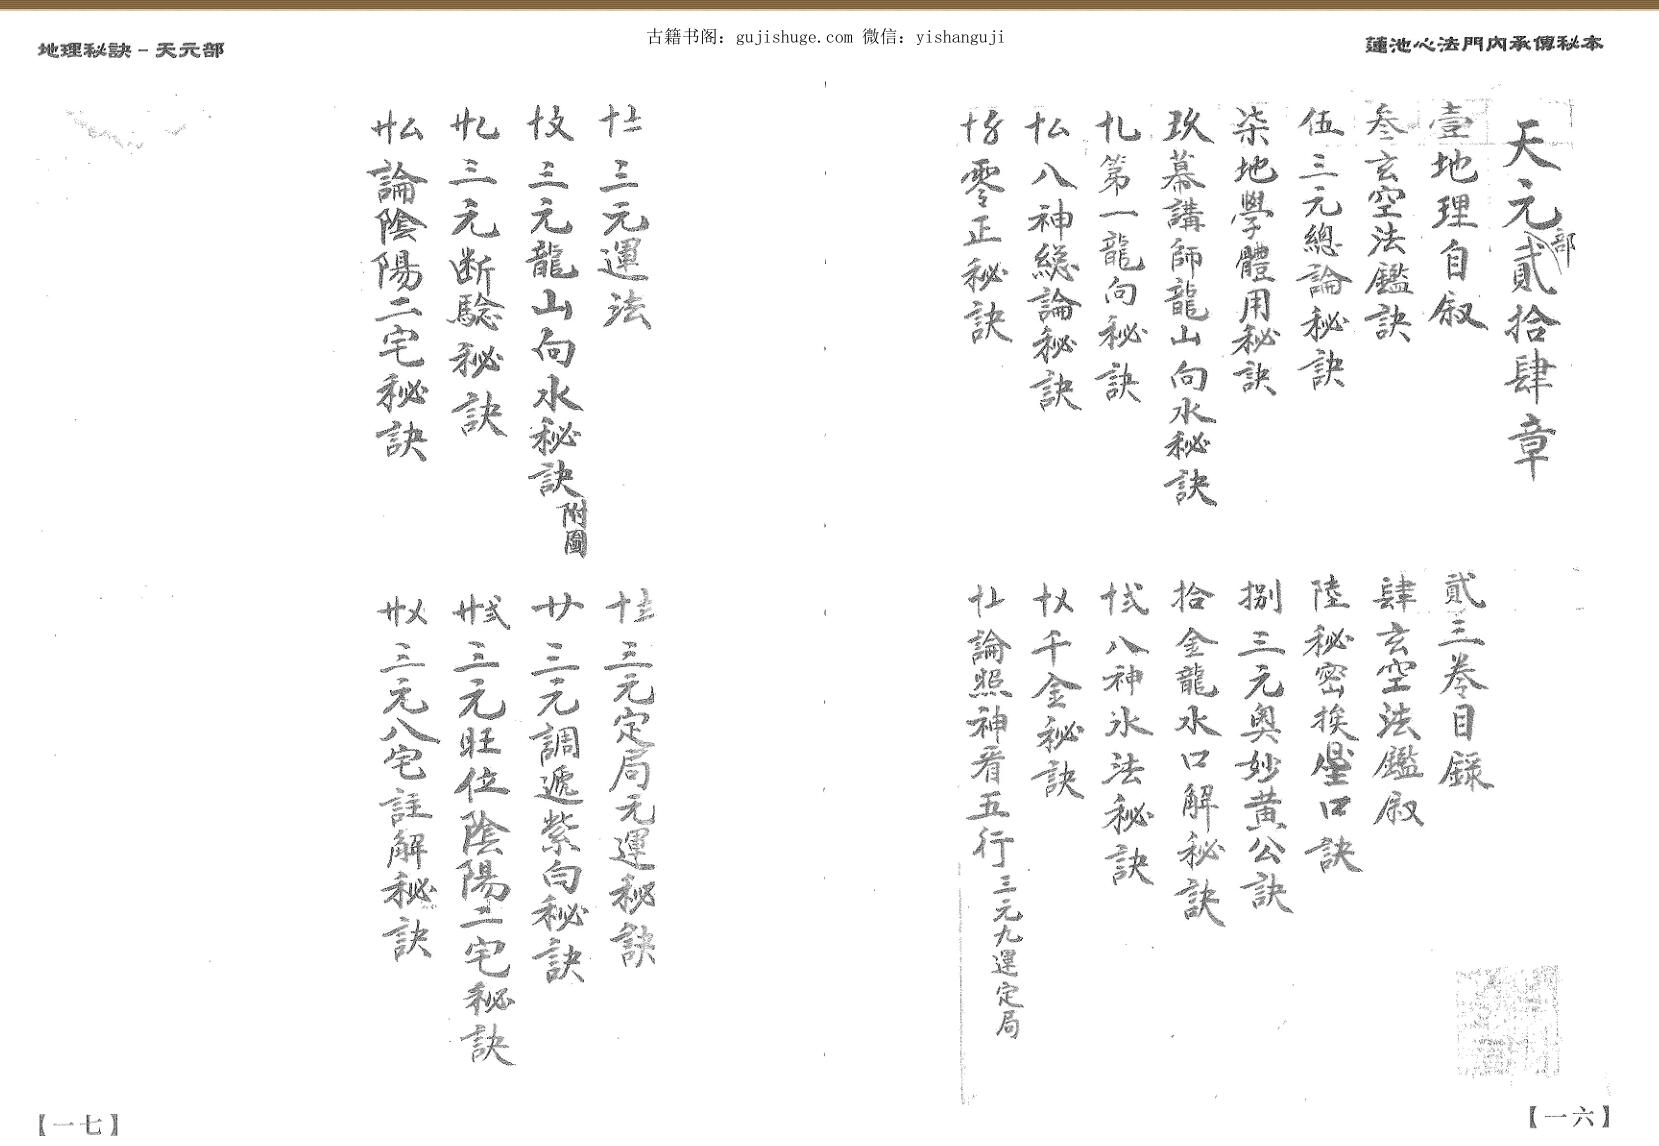 古籍书阁：gujishuge.com 微信：yishanguji
蓮池心法門內承傳秘本
天元部貳拾肆章
壹地理自叙
貳三卷目錄
叁玄空法鑑訣
肆玄空法鑑叙
伍三元總論秘訣
陸秘密挨星口訣
柒地學體用秘訣
捌三元奧妙黃公訣
玖幕講師龍山向水秘訣
拾金龍水口解秘訣
第一龍向秘訣
八神氷法秘訣
八神総論秘訣
千金秘訣
零正秘訣
論照神看五行三元九運定局
【一六】
地理秘訣－天元部
三元運法
三元定局元運秘訣
三元龍山向水秘訣附圖
廿三元調遞紫向秘訣
三元断騐秘訣
三元旺位陰陽二宅秘訣
論陰陽二宅秘訣
三元八宅註解秘訣
【一七】